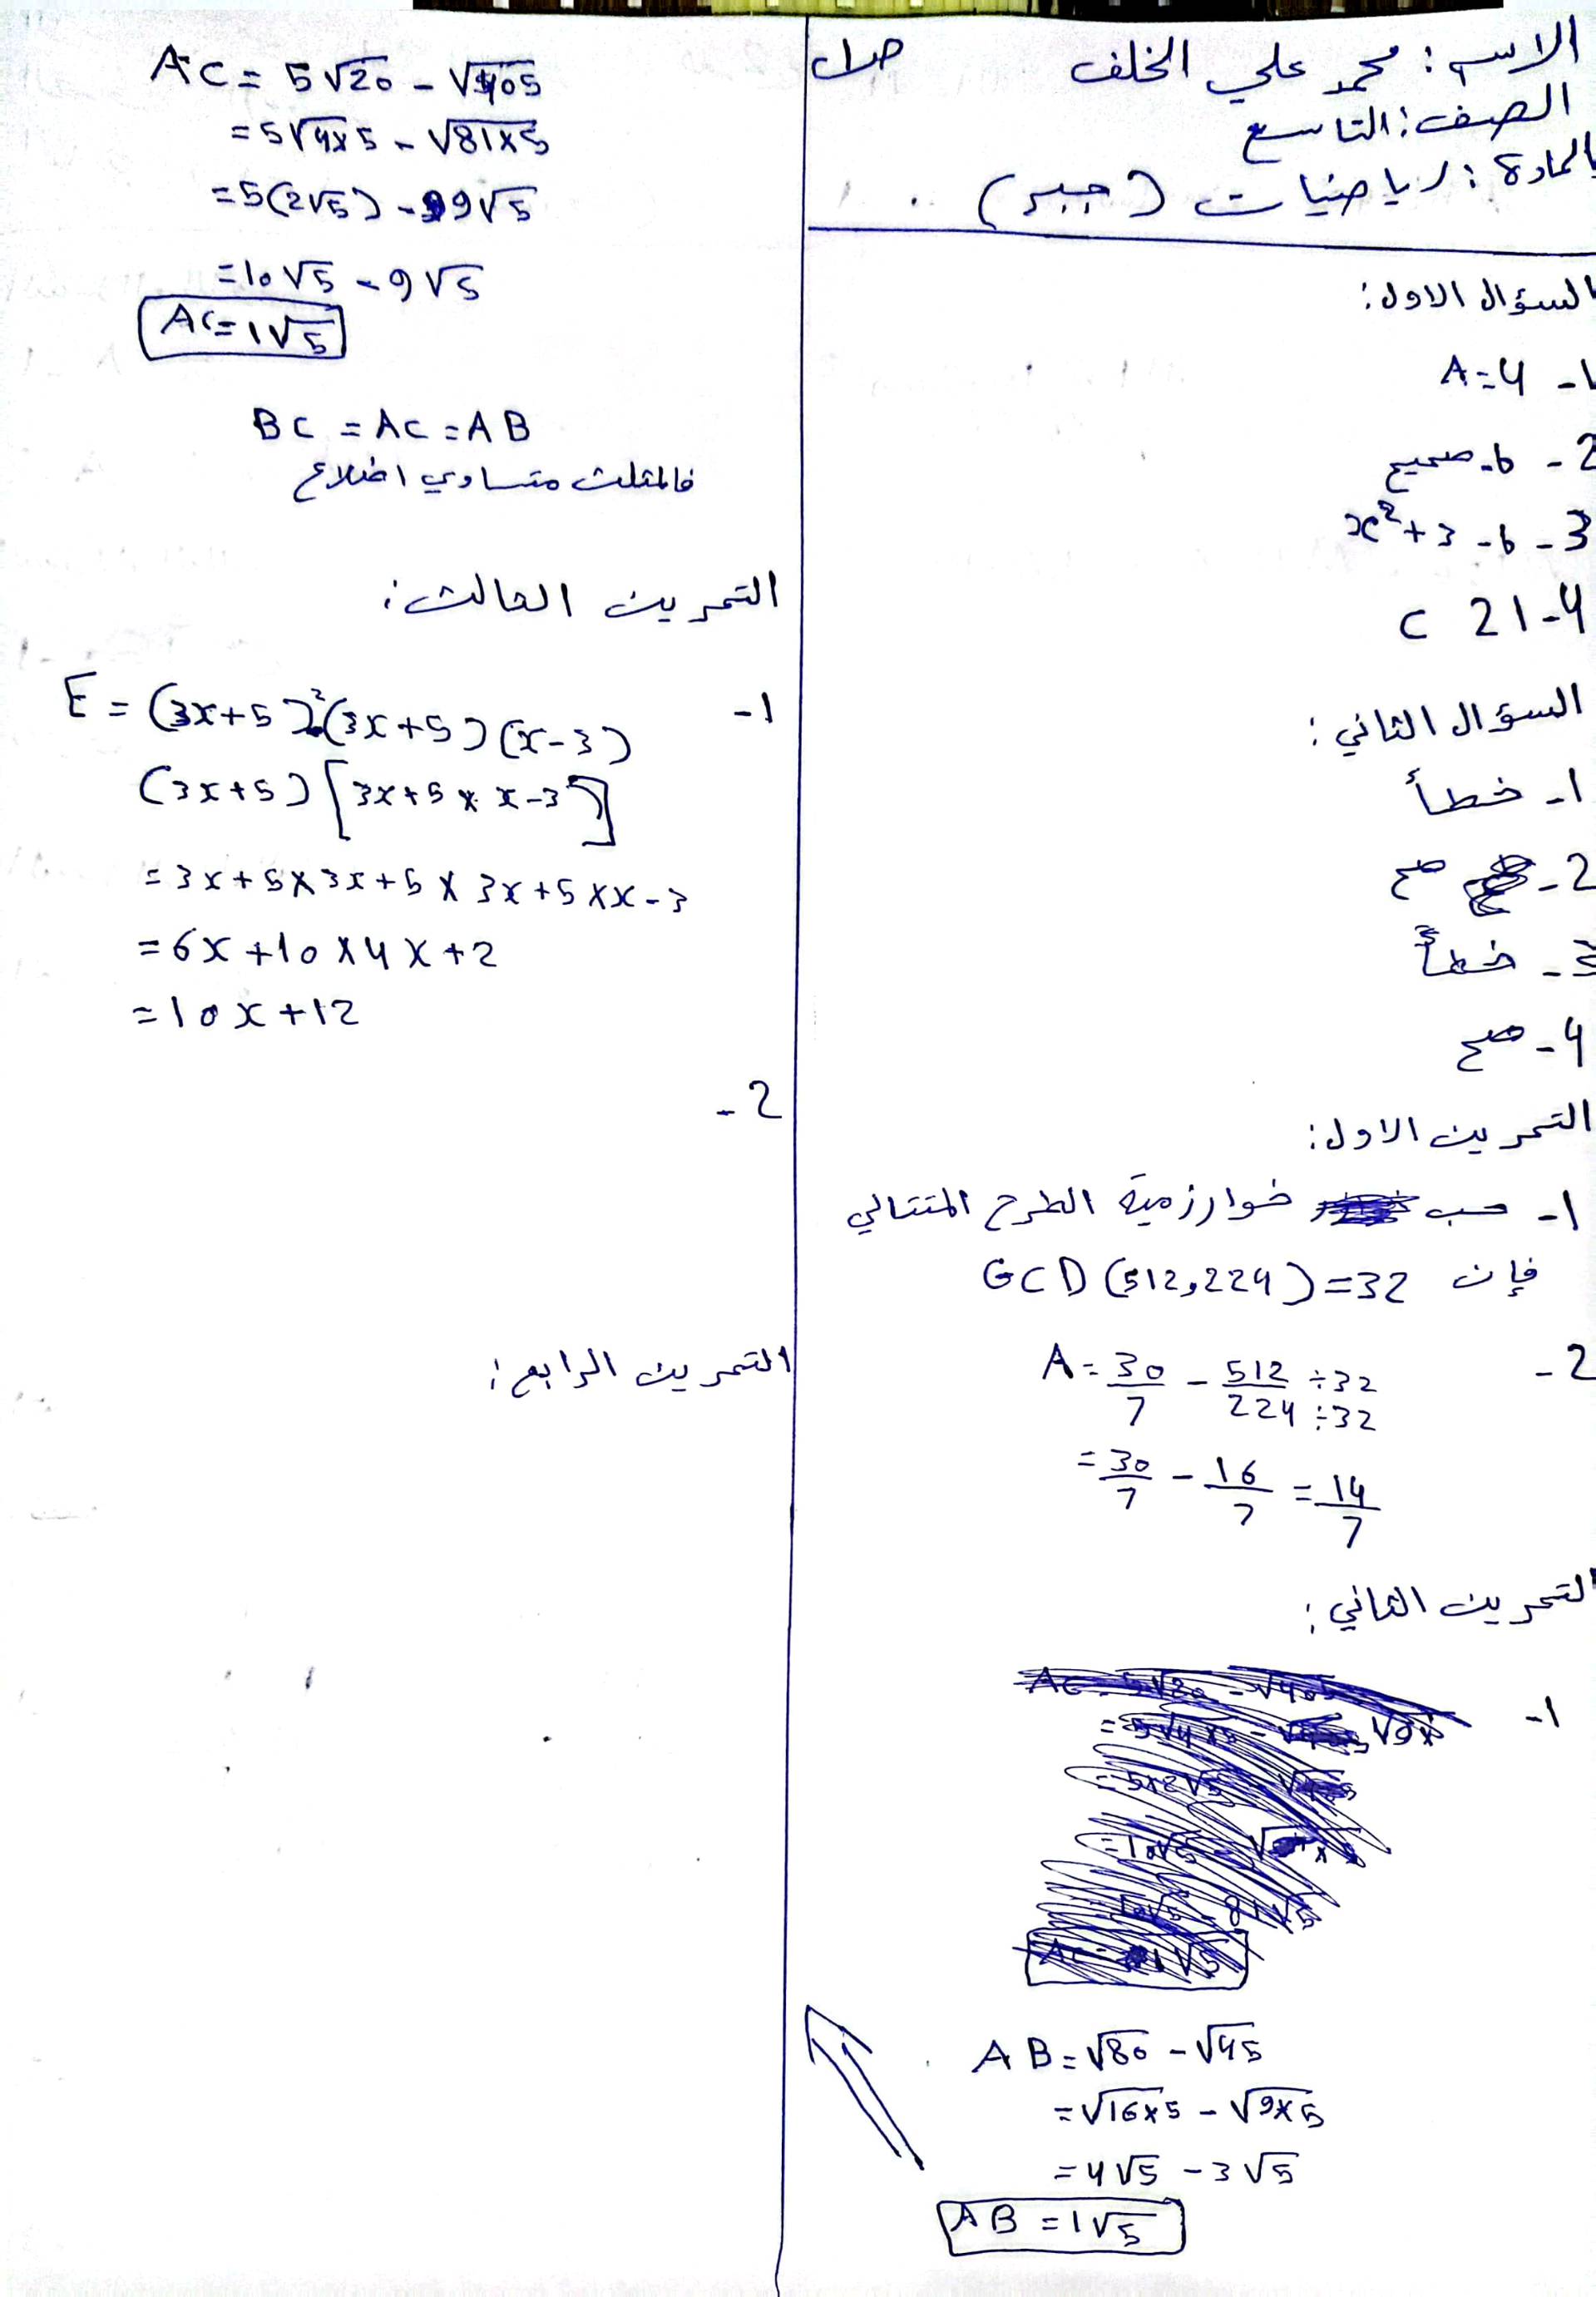 الاسم : محمد علي الخلف
ص1
الصف : التاسع
المادة : رياضيات (جبر)
السؤال الاول :
1- A=4
2- b- صحيح
3- b- x²+3
4- 21 c
السؤال الثاني :
1- خطأ
2- صح
3- خطأ
4- صح
التمرين الاول :
1- حسب خوارزمية الطرح المتتالي
فإن GCD (512,224)=32
2- A= 30/7 - 512/224 ÷32 ÷32
= 30/7 - 16/7 = 14/7
التمرين الثاني :
1-
AB=√80 - √45
=√16×5 - √9×5
=4√5 - 3√5
AB =1√5
AC= 5√20 - √405
=5√4×5 - √81×5
=5(2√5) - 9√5
=10√5 - 9√5
AC=1√5
BC = AC = AB
فالمثلث متساوي اضلاع
التمرين الثالث :
1- E = (3x+5)²(3x+5)(x-3)
(3x+5)[3x+5 × x-3]
=3x+5×3x+5 × 3x+5×x-3
=6x+10×4x+2
=10x+12
2-
التمرين الرابع :